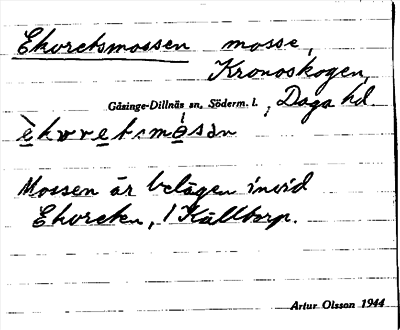 Ekoretsmossen mosse,
Kronoskogen,
Gåsinge-Dillnäs sn, Söderm. l. , Daga hd
èkωrετsmåsən
Mossen är belägen invid
Ekoreten, / Källtorp.
Artur Olsson 1944